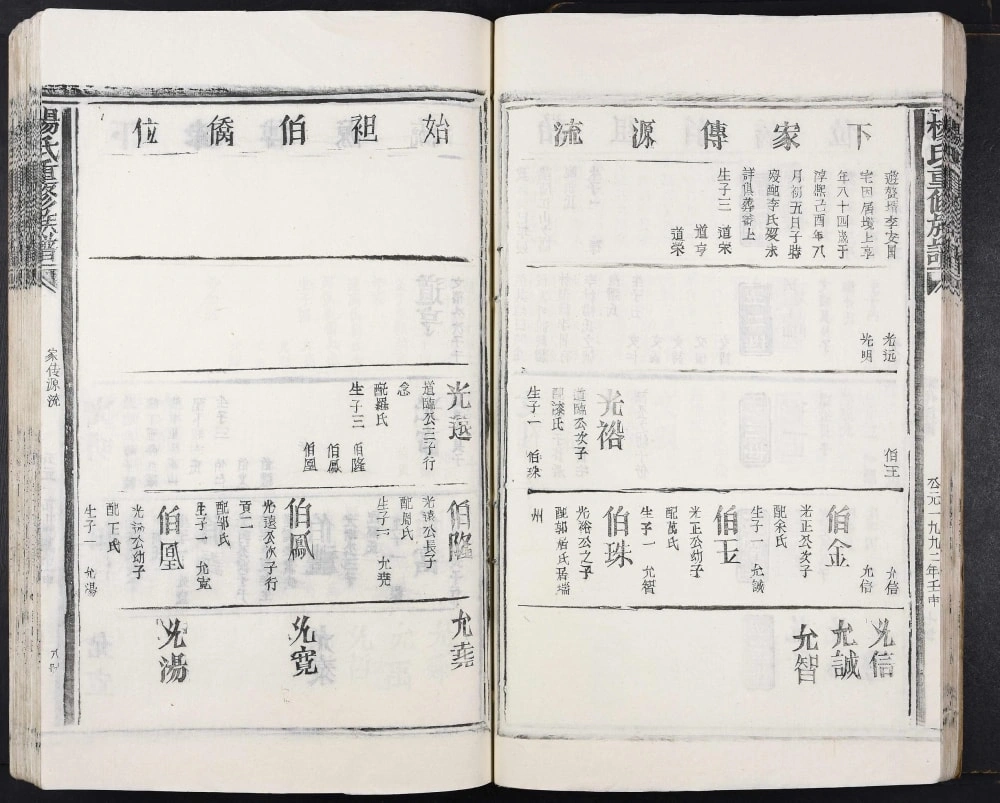 楊氏重修族譜
公元一九九二年壬申
下家傳源流
宅因居境上享
年八十四歲于
淳熙己酉年八
月初五日子時
歿配李氏歿永
詳俱葬蓄上
生子三 道宋
道亨
道榮
光远
光明
伯玉
光裕
道臨公次子
配漆氏
生子一 伯珠
允信
伯金
光正公次子
配余氏
生子一 允誠
伯玉
光正公幼子
配萬氏
生子一 允智
伯珠
光裕公之子
配郭宿氏居瑞
州
允信
允誠
允智
始祖伯僑位
光遠
道臨公三子行
念
配羅氏
生子三 伯隆
伯鳳
伯凰
伯隆
光遠公長子
配周氏
生子一 允堯
伯鳳
光遠公次子行
貢二
配郭氏
生子一 允寬
伯凰
光遠公幼子
配丁氏
生子一 允湯
允堯
允寬
允湯
楊氏重修族譜
家传源流